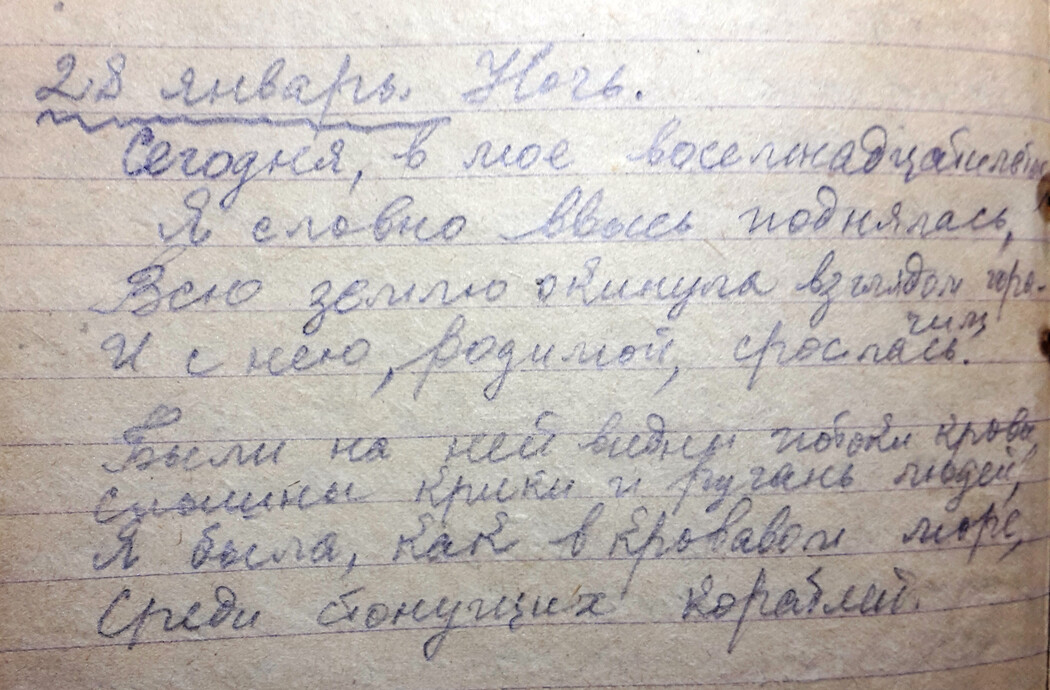 28 январь. Ночь.
Сегодня, в мое восемнадцатилетие
Я словно ввысь поднялась,
Всю землю окинула взглядом горя-
чим
И с нею, родимой, срослась.
Были на ней видны потоки крови
слышны крики и ругань людей,
Я была, как в кровавом море,
Среди тонущих кораблей.